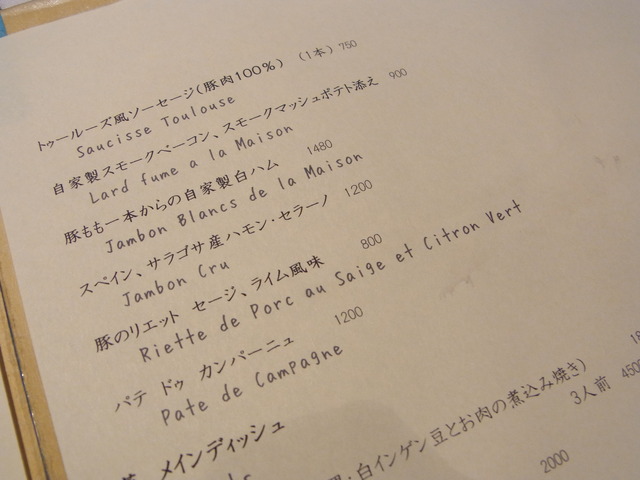 トゥールーズ風ソーセージ(豚肉100%) (1本) 750
Saucisse Toulouse
自家製スモークベーコン、スモークマッシュポテト添え 900
Lard fume a la Maison
豚もも一本からの自家製白ハム 1480
Jambon Blancs de la Maison
スペイン、サラゴサ産ハモン・セラーノ 1200
Jambon Cru
豚のリエット セージ、ライム風味 800
Riette de Porc au Saige et Citron Vert
パテ ドゥ カンパーニュ 1200
Pate de Campagne
メインディッシュ
・白インゲン豆とお肉の煮込み焼き)
3人前 4500
2000